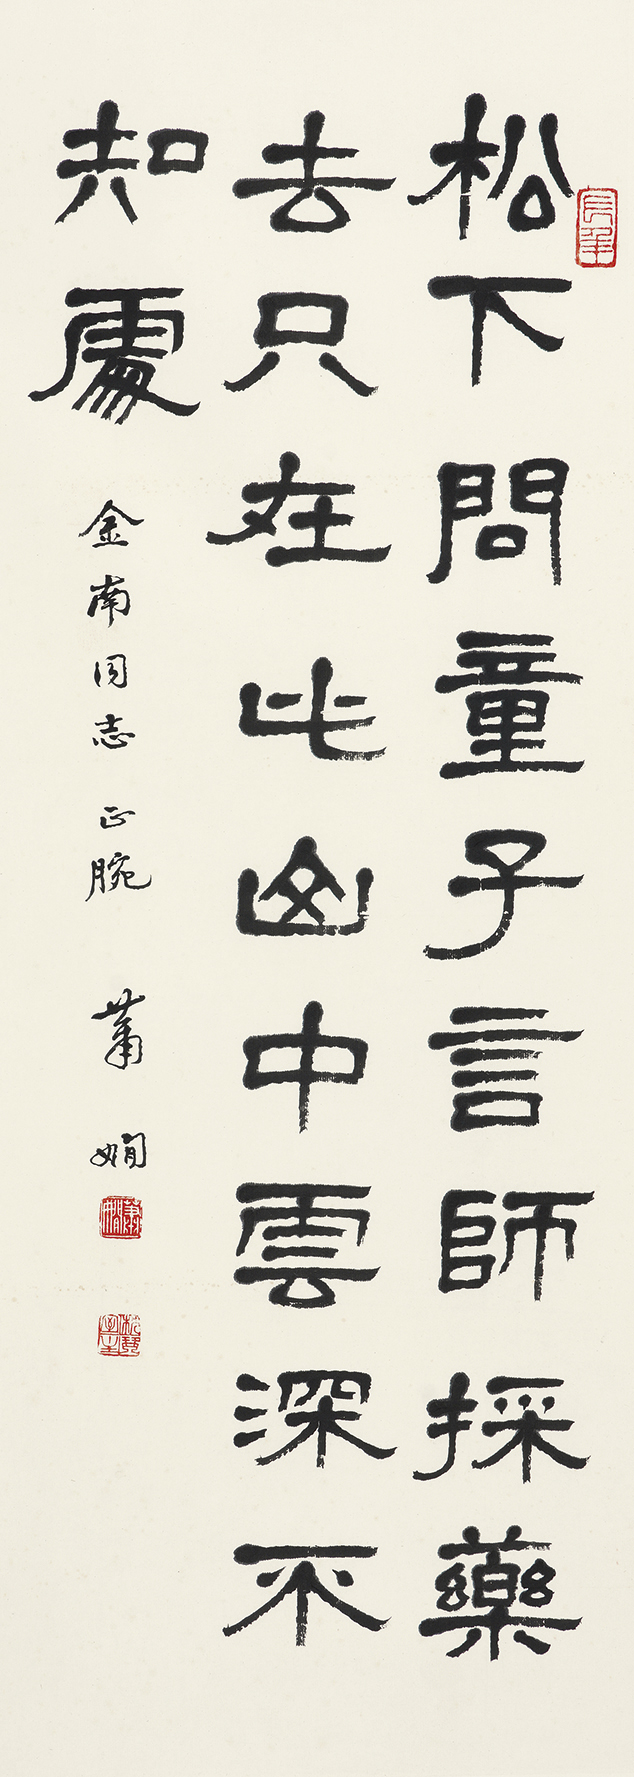 松下問童子言師採藥
去只在此山中雲深不
知處
金南同志 正腕
蕭嫻
蕭嫻